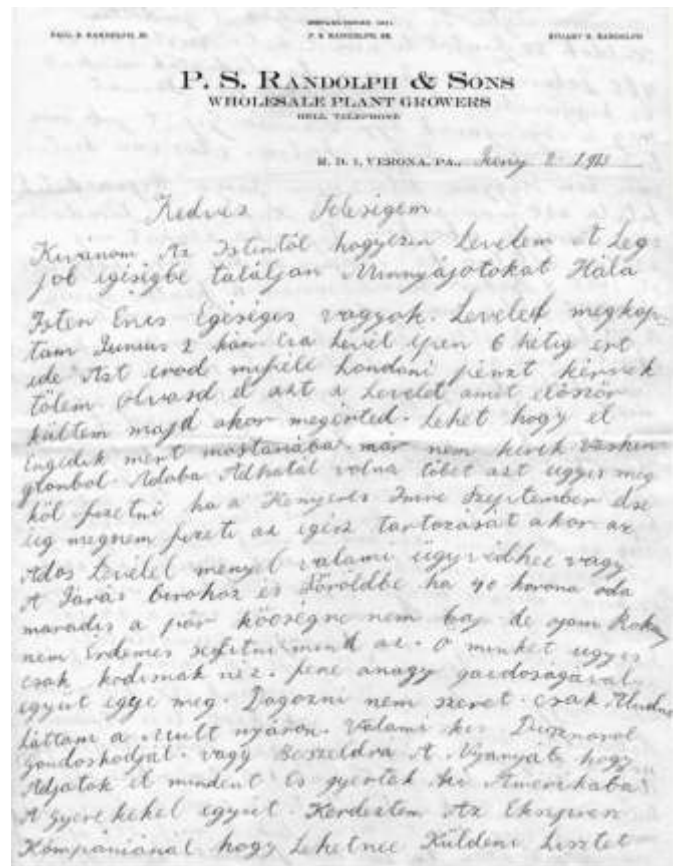 ESTABLISHED 1871
PAUL S. RANDOLPH, JR. P. S. RANDOLPH, SR. STUART S. RANDOLPH
P. S. RANDOLPH & SONS
WHOLESALE PLANT GROWERS
BELL TELEPHONE
R. D. 1, VERONA, PA., Juny 2
Kedves Feleségem
Kivánom Az Istentöl hogyezen Levelem at Leg
job egiségbe találjan Minnyájotokat Hála
Isten Enis Egiséges vagyok. Leveled megkap
tam Junius 2 kán Eza levél épen 6 hétig ért
ide Ast irod miféle londoni pénzt kérnek
tölem olvasd el azt a Levelet amit elöször
kültem majd akor megérted. lehet hogy el
Engedik mert mostanába már nem kérek Washin
gtonbol. Adoba Adhatál volna töbet azt ugyis meg
köl fizetni ha a Kenyeres Imre Szeptember else
ig megnem fizeti az égész tartozását akor az
Ados Levelet menyel valami ügyvédhez vagy
A Járás birohoz és Töröldbe ha 40 korona oda
maradis a pör köcségre nem baj de
nem Érdemes sefitni mend az. O minket ugyis
csak kodisnak néz. fene anagy gazdoságával
együt egye meg. Dogozni nem szeret. csak Aludni
láttam a Mult nyáron. Valami kis Disznorol
gondoskodjál. vagy Beszeldra A Nyanyát hogy
Adjatok el mindent És gyertek ki Amerikába
A gyerekekel együt. Kerdeztem Az Ekspres
Kompániánál hogy Lehetnee Küldeni Lisztet